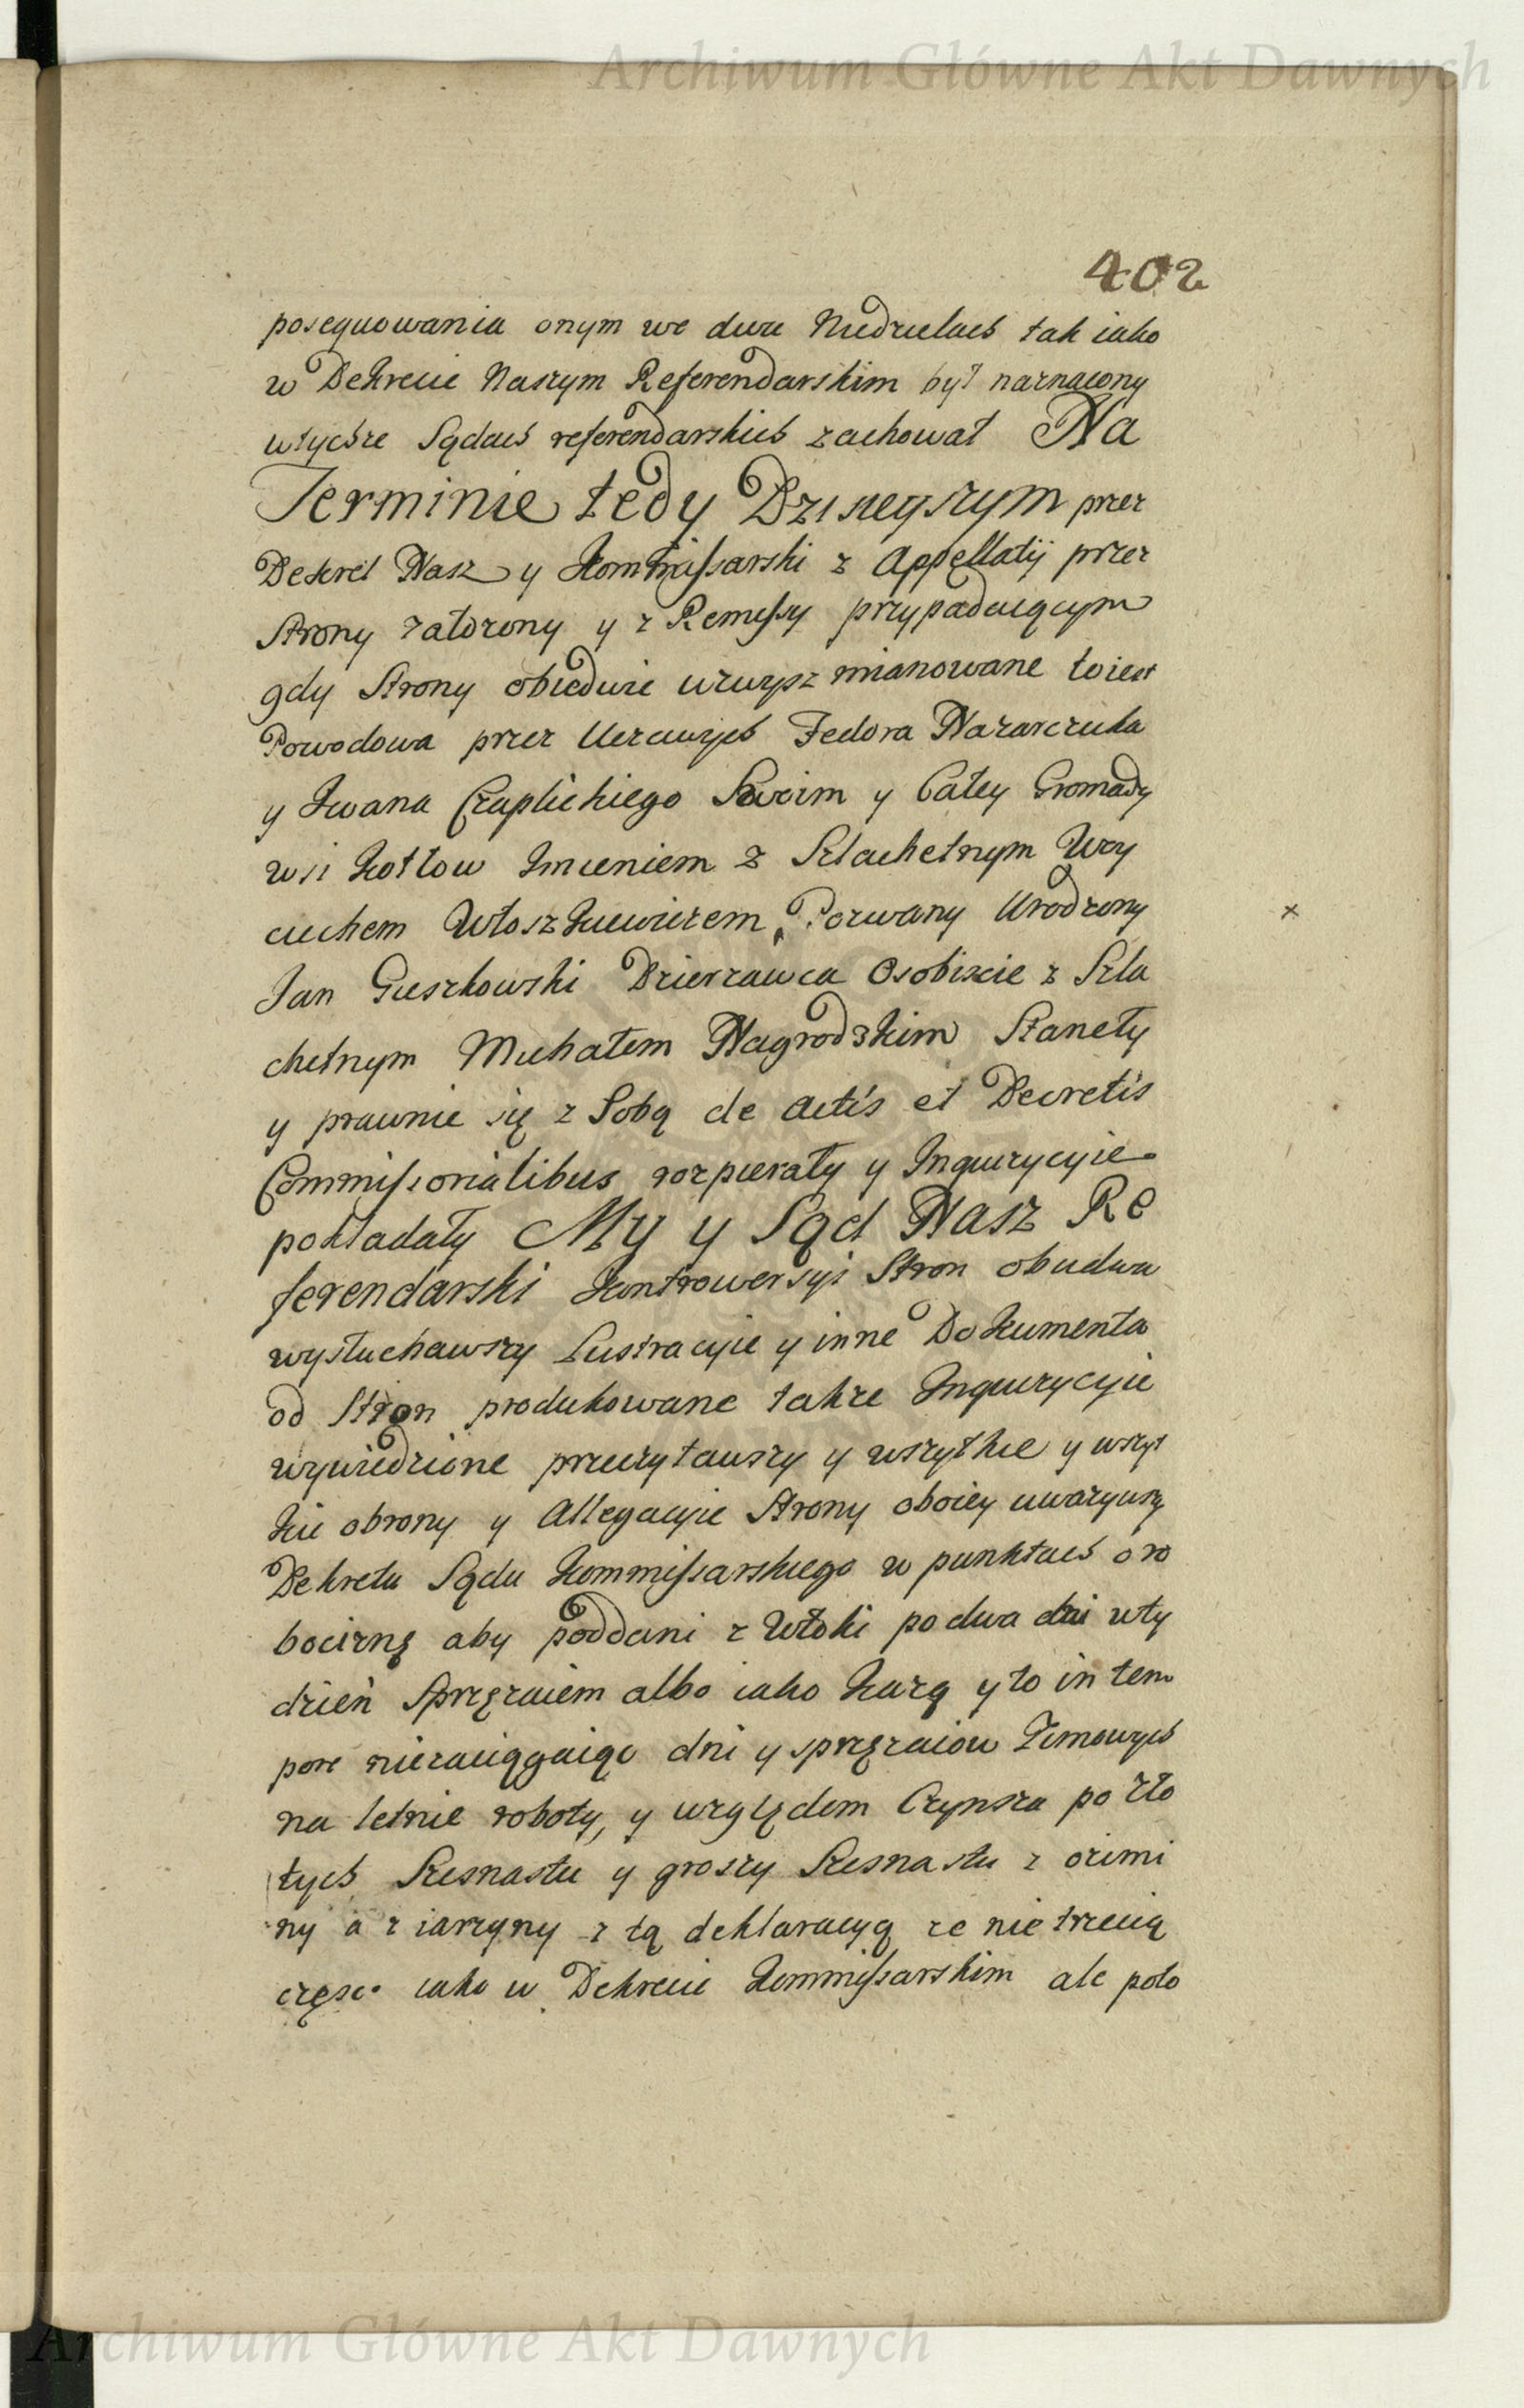 Archiwum Główne Akt Dawnych
402
posequowania onym we dwu Niedzielach tak iako
w Dekrecie Naszym Referendarskim był naznaczony
wtychże Sądach referendarskich zachował Na
Terminie tedy Dzisieyszym przez
Dekret Nasz y Kommissarski z Appellatij przez
Strony założony y z Remissy przypadaiącym
gdy Strony obiedwie wzwysz mianowane toiest
Powodowa przez Uczciwych Fedora Nazarczuka
y Iwana Czaplickiego Swoim y Całey Gromady
wsi Kotłow Imieniem z Szlachetnym Woy
ciechem Włoszkiewiczem, Pozwany Urodzony
Jan Guszkowski Dzierzawca Osobiscie z Szla
chetnym Michałem Nagrodzkim Staneły
y prawnie się z Sobą de Actis et Decretis
Commissorialibus rozpierały y Inquizycyie
pokładały My y Sąd Nasz Re
ferendarski Kontrowersyi Stron obudwu
wysłuchawszy Lustracyie y inne Dokumenta
od Stron produkowane także Inquizycyie
wywiedzione przeczytawszy y wszytkie y wszyt
kie obrony y Allegacyie Strony oboiey uwazywszy
Dekretu Sądu Kommissarskiego w punktach o ro
bociznę aby poddani z Włoki po dwa dni w ty
dzień Sprzęzaiem albo iako Każą y to in tem
pore niezaciągaiąc dni y sprzęzaiow Zimowych
na letnie roboty, y względem Czynszu po Zło
tych Szesnastu y groszy Szesnastu z ozimi
ny a z iarzyny z tą deklaracyą ze nie trzecią
częsc iako w Dekrecie Kommissarskim ale poło
x
Archiwum Główne Akt Dawnych